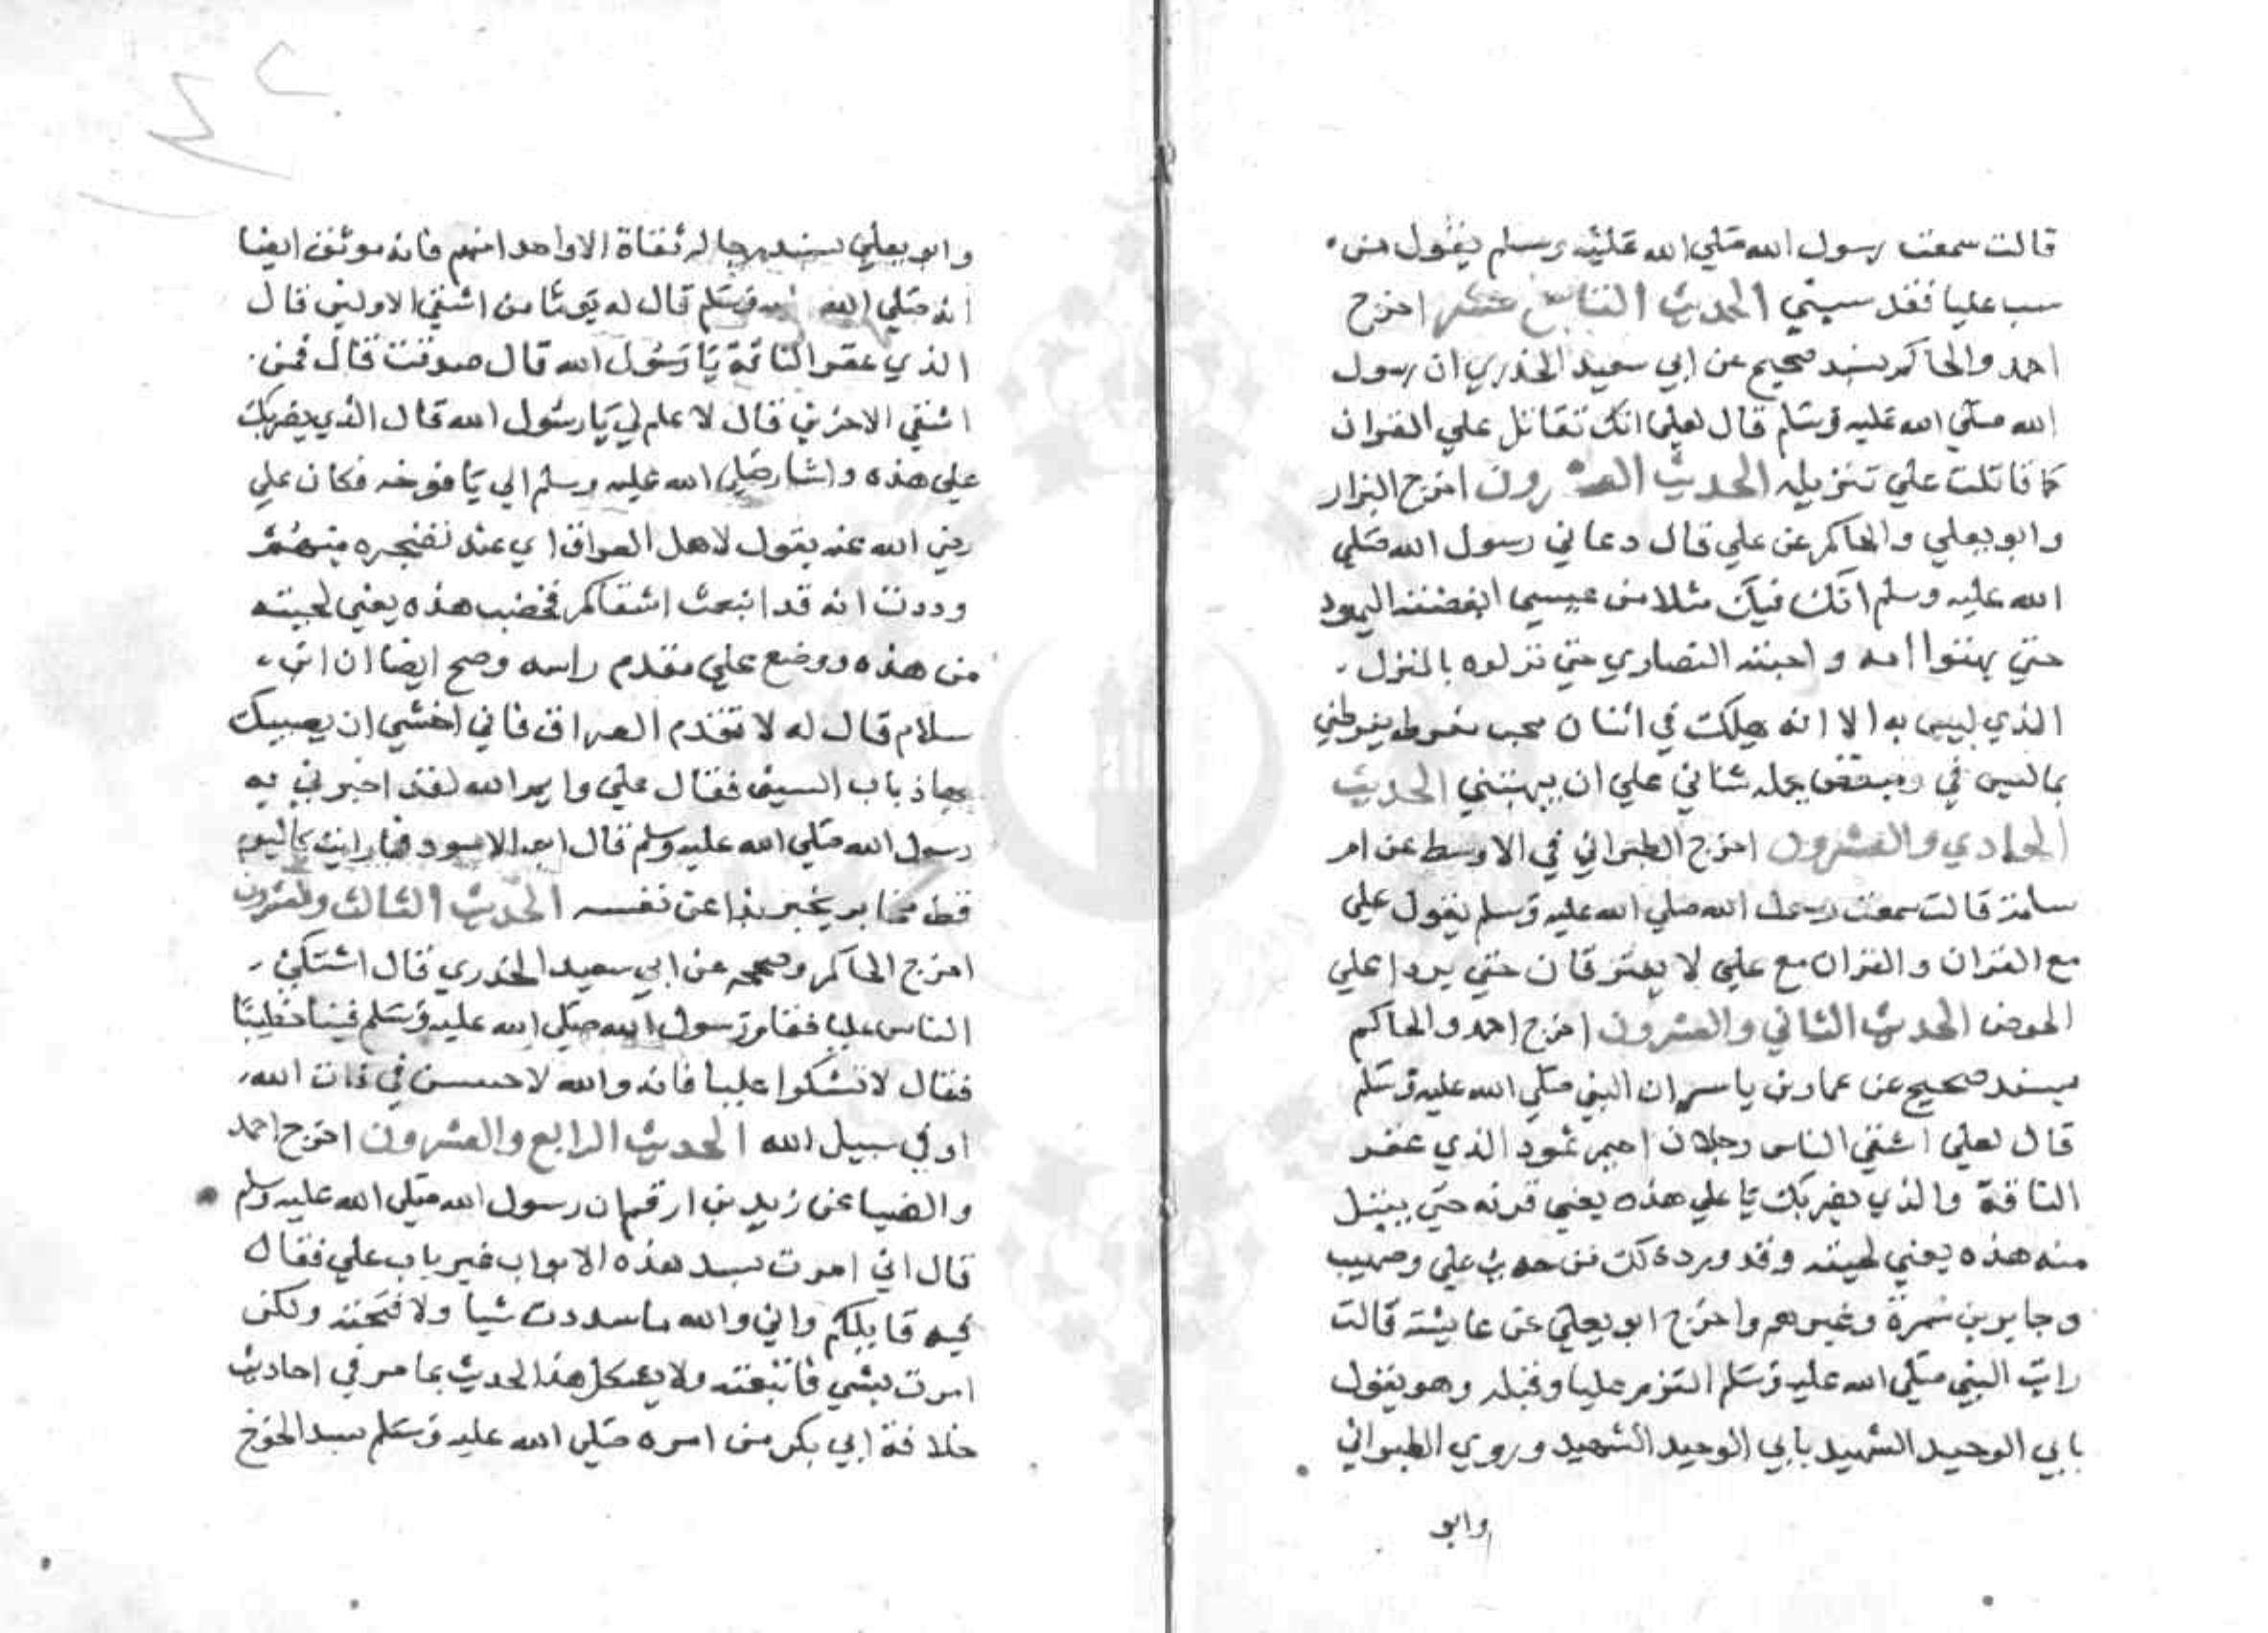 قالت سمعت رسول الله صلي الله عليه وسلم يقول من
سب عليا فقد سبني الحديث التاسع عشر اخرج
احمد والحاكم بسند صحيح عن ابي سعيد الخذري ان رسول
الله صلي الله عليه وسلم قال لعلي انك تقاتل علي القران
كما قاتلت علي تنزيله الحديث العشرون اخرج البزار
وابو يعلي والحاكم عن علي قال دعاني رسول الله صلي
الله عليه وسلم انك فيك مثلا من عيسي ابغضته اليهود
حتي بهتوا امه واحبته النصاري حتي نزلوه بالمنزل
الذي ليس به الا انه هلك في اثنان محب مفرط يفرطني
بما ليس في ومبغض يحمله شناني علي ان يبهتني الحديث
الحادي والعشرون اخرج الطبراني في الاوسط عن ام
سلمة قالت سمعت رسول الله صلي الله عليه وسلم يقول علي
مع القران والقران مع علي لا يفترقان حتي يردا علي
الحوض الحديث الثاني والعشرون اخرج احمد والحاكم
بسند صحيح عن عمار بن ياسر ان النبي صلي الله عليه وسلم
قال لعلي اشقي الناس رجلان احيمر ثمود الذي عقر
الناقة والذي يضربك يا علي هذه يعني قرنه حتي يبتل
منه هذه يعني لحيته وقد ورد ذلك من حديث علي وصهيب
وجابر بن سمرة وغيرهم واخرج ابو يعلي عن عايشة قالت
رايت النبي صلي الله عليه وسلم التزم عليا وقبله وهو يقول
بابي الوحيد الشهيد بابي الوحيد الشهيد وروي الطبراني
وابو
وابو يعلي بسند رجاله ثقاة الا واحدا منهم فانه موثق ايضا
انه صلي الله عليه وسلم قال له يوما من اشقي الاولين قال
الذي عقر الناقة يا رسول الله قال صدقت قال فمن
اشقي الاخرين قال لا علم لي يا رسول الله قال الذي يضربك
علي هذه واشار صلي الله عليه وسلم الي يافوخه فكان علي
رضي الله عنه يقول لاهل العراق اي عند تضجره منهم
وددت انه قد انبعث اشقاكم فخضب هذه يعني لحيته
من هذه ووضع علي مقدم راسه وصح ايضا ان ابن
سلام قال له لا تقدم العراق فاني اخشي ان يصيبك
بها ذباب السيف فقال علي وايم الله لقد اخبرني به
رسول الله صلي الله عليه وسلم قال ابو الاسود فما رايت كاليوم
قط محاربر يخبر بذا عن نفسه الحديث الثالث والعشرون
اخرج الحاكم وصححه عن ابي سعيد الخذري قال اشتكي
الناس عليا فقام رسول الله صلي الله عليه وسلم فينا خطيبا
فقال لا تشكوا عليا فانه والله لاخيشن في ذات الله
او في سبيل الله الحديث الرابع والعشرون اخرج احمد
والضيا عن زيد بن ارقم ان رسول الله صلي الله عليه وسلم
قال اني امرت بسد هذه الابواب غير باب علي فقال
فيه قايلكم واني والله ما سددت شيا ولا فتحته ولكن
امرت بشي فاتبعته ولا يشكل هذا الحديث بما مر في احاديث
خلافة ابي بكر من امره صلي الله عليه وسلم بسد الخوخ